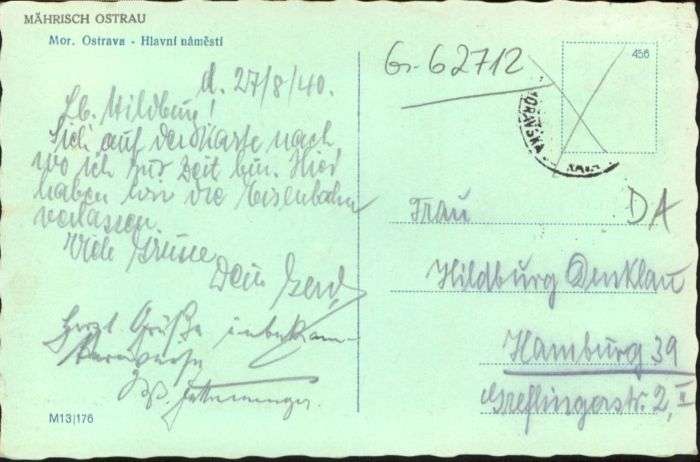 MÄHRISCH OSTRAU
Mor. Ostrava - Hlavní náměstí
Gr-62712
456
d. 27/8/40.
Lb. Hildburg!
Sieh auf der Karte nach,
wo ich zur Zeit bin. Hier
haben wir die Eisenbahn
verlassen.
Viele Grüsse
Dein Gerd,
Herzl. Grüße unbekann-
terweise
MORAVSKÁ
Frau
DA
Hildburg Denklau
Hamburg 39
Greflingerstr. 2, II
M13|176